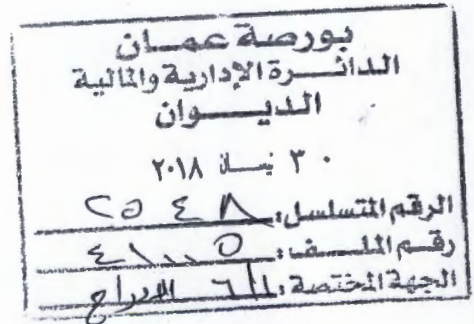 بورصة عمان
الدائرة الإدارية والمالية
الديوان
٣٠ نيسان ٢٠١٨
الرقم المتسلسل: ٢٥٤٨
رقم الملف:
الجهة المختصة: